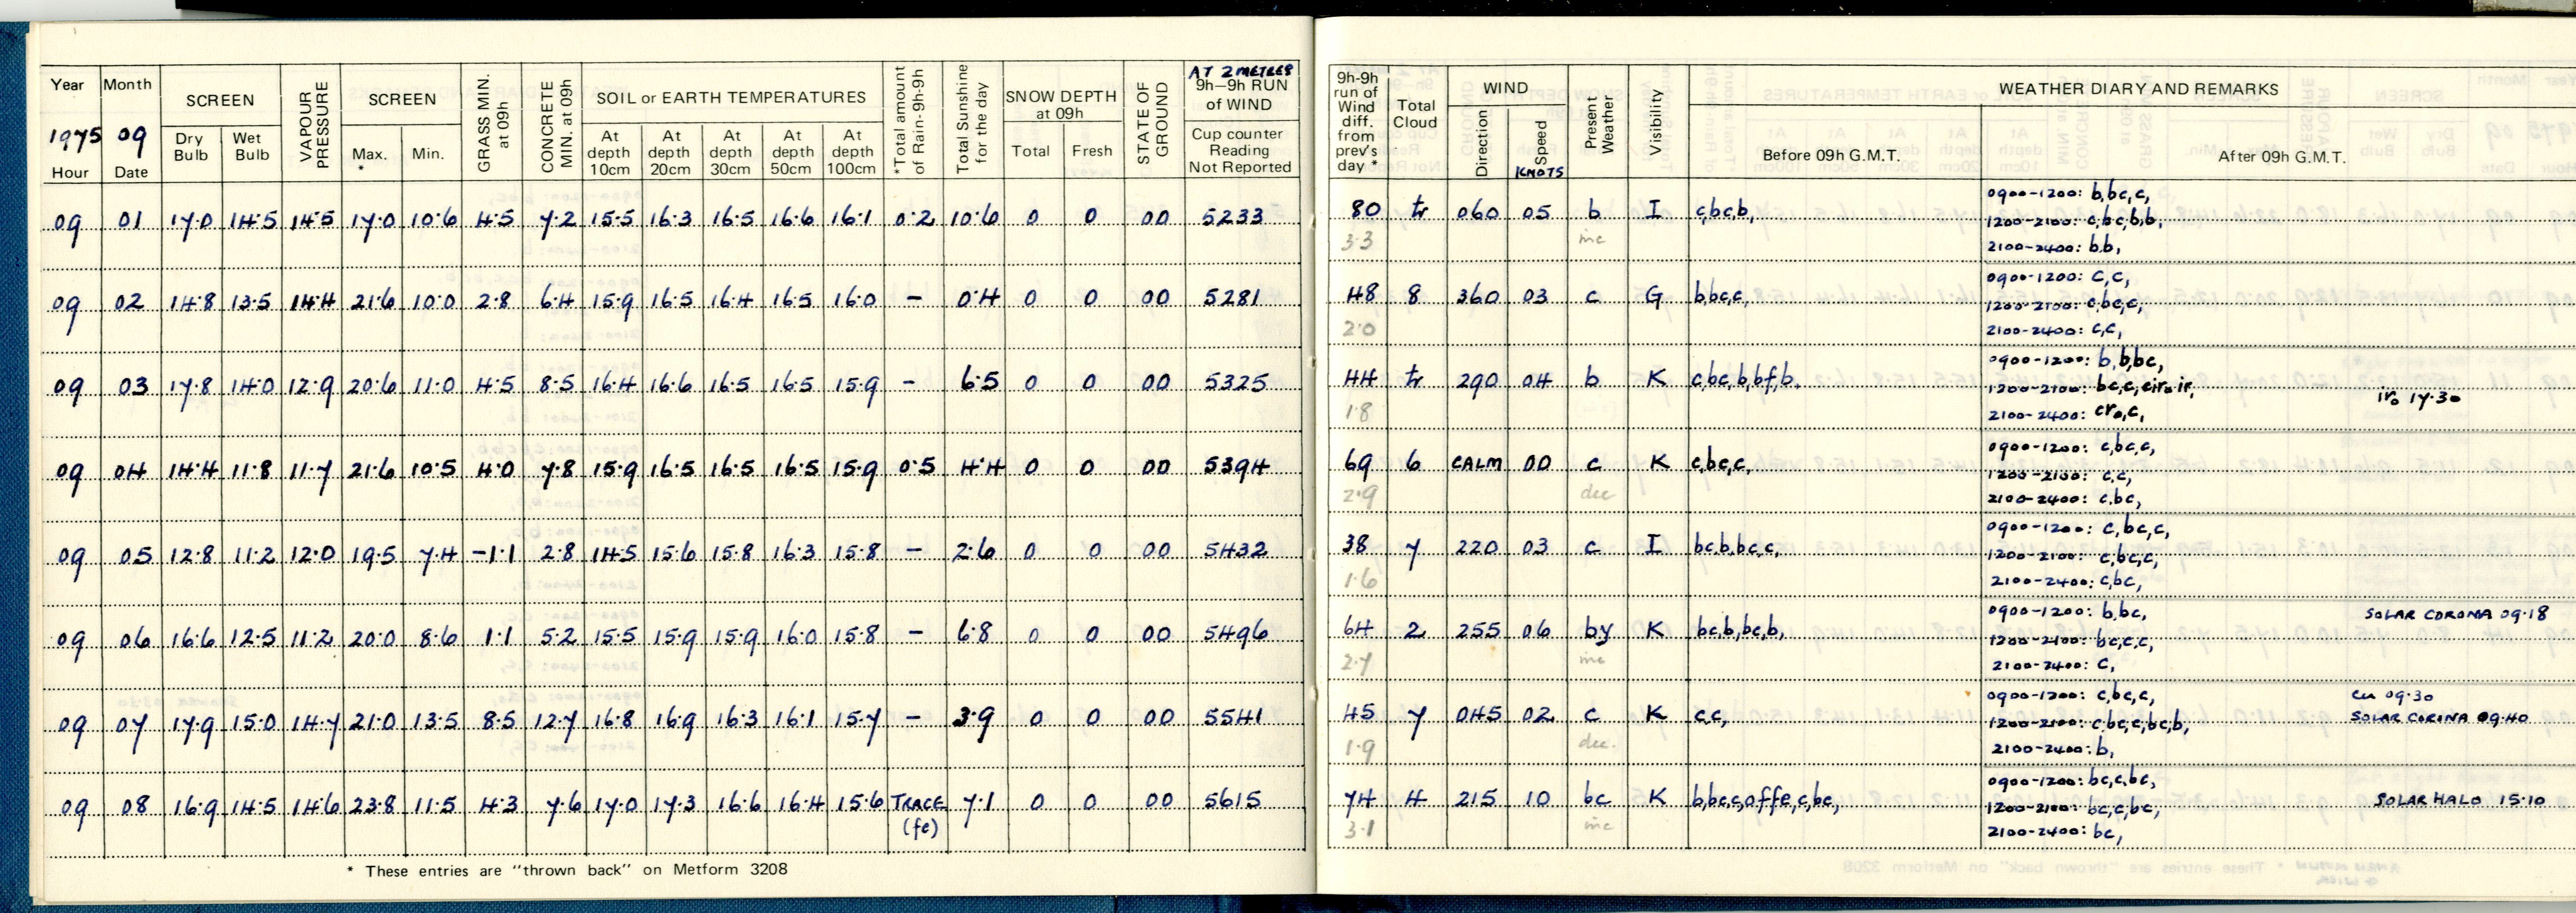 Year Month SCREEN VAPOUR PRESSURE SCREEN GRASS MIN. at 09h CONCRETE MIN. at 09h SOIL or EARTH TEMPERATURES *Total amount of Rain-9h-9h Total Sunshine for the day SNOW DEPTH at 09h STATE OF GROUND AT 2 METRES 9h—9h RUN of WIND
1975 09 Dry Bulb Wet Bulb Max. * Min. At depth 10cm At depth 20cm At depth 30cm At depth 50cm At depth 100cm Total Fresh Cup counter Reading Not Reported
Hour Date
09 01 17·0 14·5 14·5 17·0 10·6 4·5 7·2 15·5 16·3 16·5 16·6 16·1 0·2 10·6 0 0 00 5233
09 02 14·8 13·5 14·4 21·6 10·0 2·8 6·4 15·9 16·5 16·4 16·5 16·0 – 0·4 0 0 00 5281
09 03 17·8 14·0 12·9 20·6 11·0 4·5 8·5 16·4 16·6 16·5 16·5 15·9 – 6·5 0 0 00 5325
09 04 14·4 11·8 11·7 21·6 10·5 4·0 7·8 15·9 16·5 16·5 16·5 15·9 0·5 4·4 0 0 00 5394
09 05 12·8 11·2 12·0 19·5 7·4 –1·1 2·8 14·5 15·6 15·8 16·3 15·8 – 2·6 0 0 00 5432
09 06 16·6 12·5 11·2 20·0 8·6 1·1 5·2 15·5 15·9 15·9 16·0 15·8 – 6·8 0 0 00 5496
09 07 17·9 15·0 14·7 21·0 13·5 8·5 12·7 16·8 16·9 16·3 16·1 15·7 – 3·9 0 0 00 5541
09 08 16·9 14·5 14·6 23·8 11·5 4·3 7·6 17·0 17·3 16·6 16·4 15·6 TRACE 7·1 0 0 00 5615
(fe)
* These entries are "thrown back" on Metform 3208
9h-9h run of Wind diff. from prev's day * Total Cloud WIND Present Weather Visibility WEATHER DIARY AND REMARKS
Direction Speed KNOTS Before 09h G.M.T. After 09h G.M.T.
0900-1200: b,bc,c,
80 tr 060 05 b I c,bc,b, 1200-2100: c,bc,b,b,
3·3 inc 2100-2400: b,b,
0900-1200: c,c,
48 8 360 03 c G b,bc,c, 1200-2100: c,bc,c,
2·0 2100-2400: c,c,
0900-1200: b,b,bc,
44 tr 290 04 b K c,bc,b,bf,b. 1200-2100: bc,c,ciro,ir, iro 17·30
1·8 2100-2400: cro,c,
0900-1200: c,bc,c,
69 6 CALM 00 c K c,bc,c, 1200-2100: c,c,
2·9 dec 2100-2400: c,bc,
0900-1200: c,bc,c,
38 7 220 03 c I bc,b,bc,c, 1200-2100: c,bc,c,
1·6 2100-2400: c,bc,
0900-1200: b,bc, SOLAR CORONA 09·18
64 2 255 06 by K bc,b,bc,b, 1200-2100: bc,c,c,
2·7 inc 2100-2400: c,
0900-1200: c,bc,c, cu 09·30
45 7 045 02 c K c,c, 1200-2100: c,bc,c,bc,b, SOLAR CORONA 09·40
1·9 dec. 2100-2400: b,
0900-1200: bc,c,bc,
74 4 215 10 bc K b,bc,c,offe,c,bc, 1200-2100: bc,c,bc, SOLAR HALO 15·10
3·1 inc 2100-2400: bc,